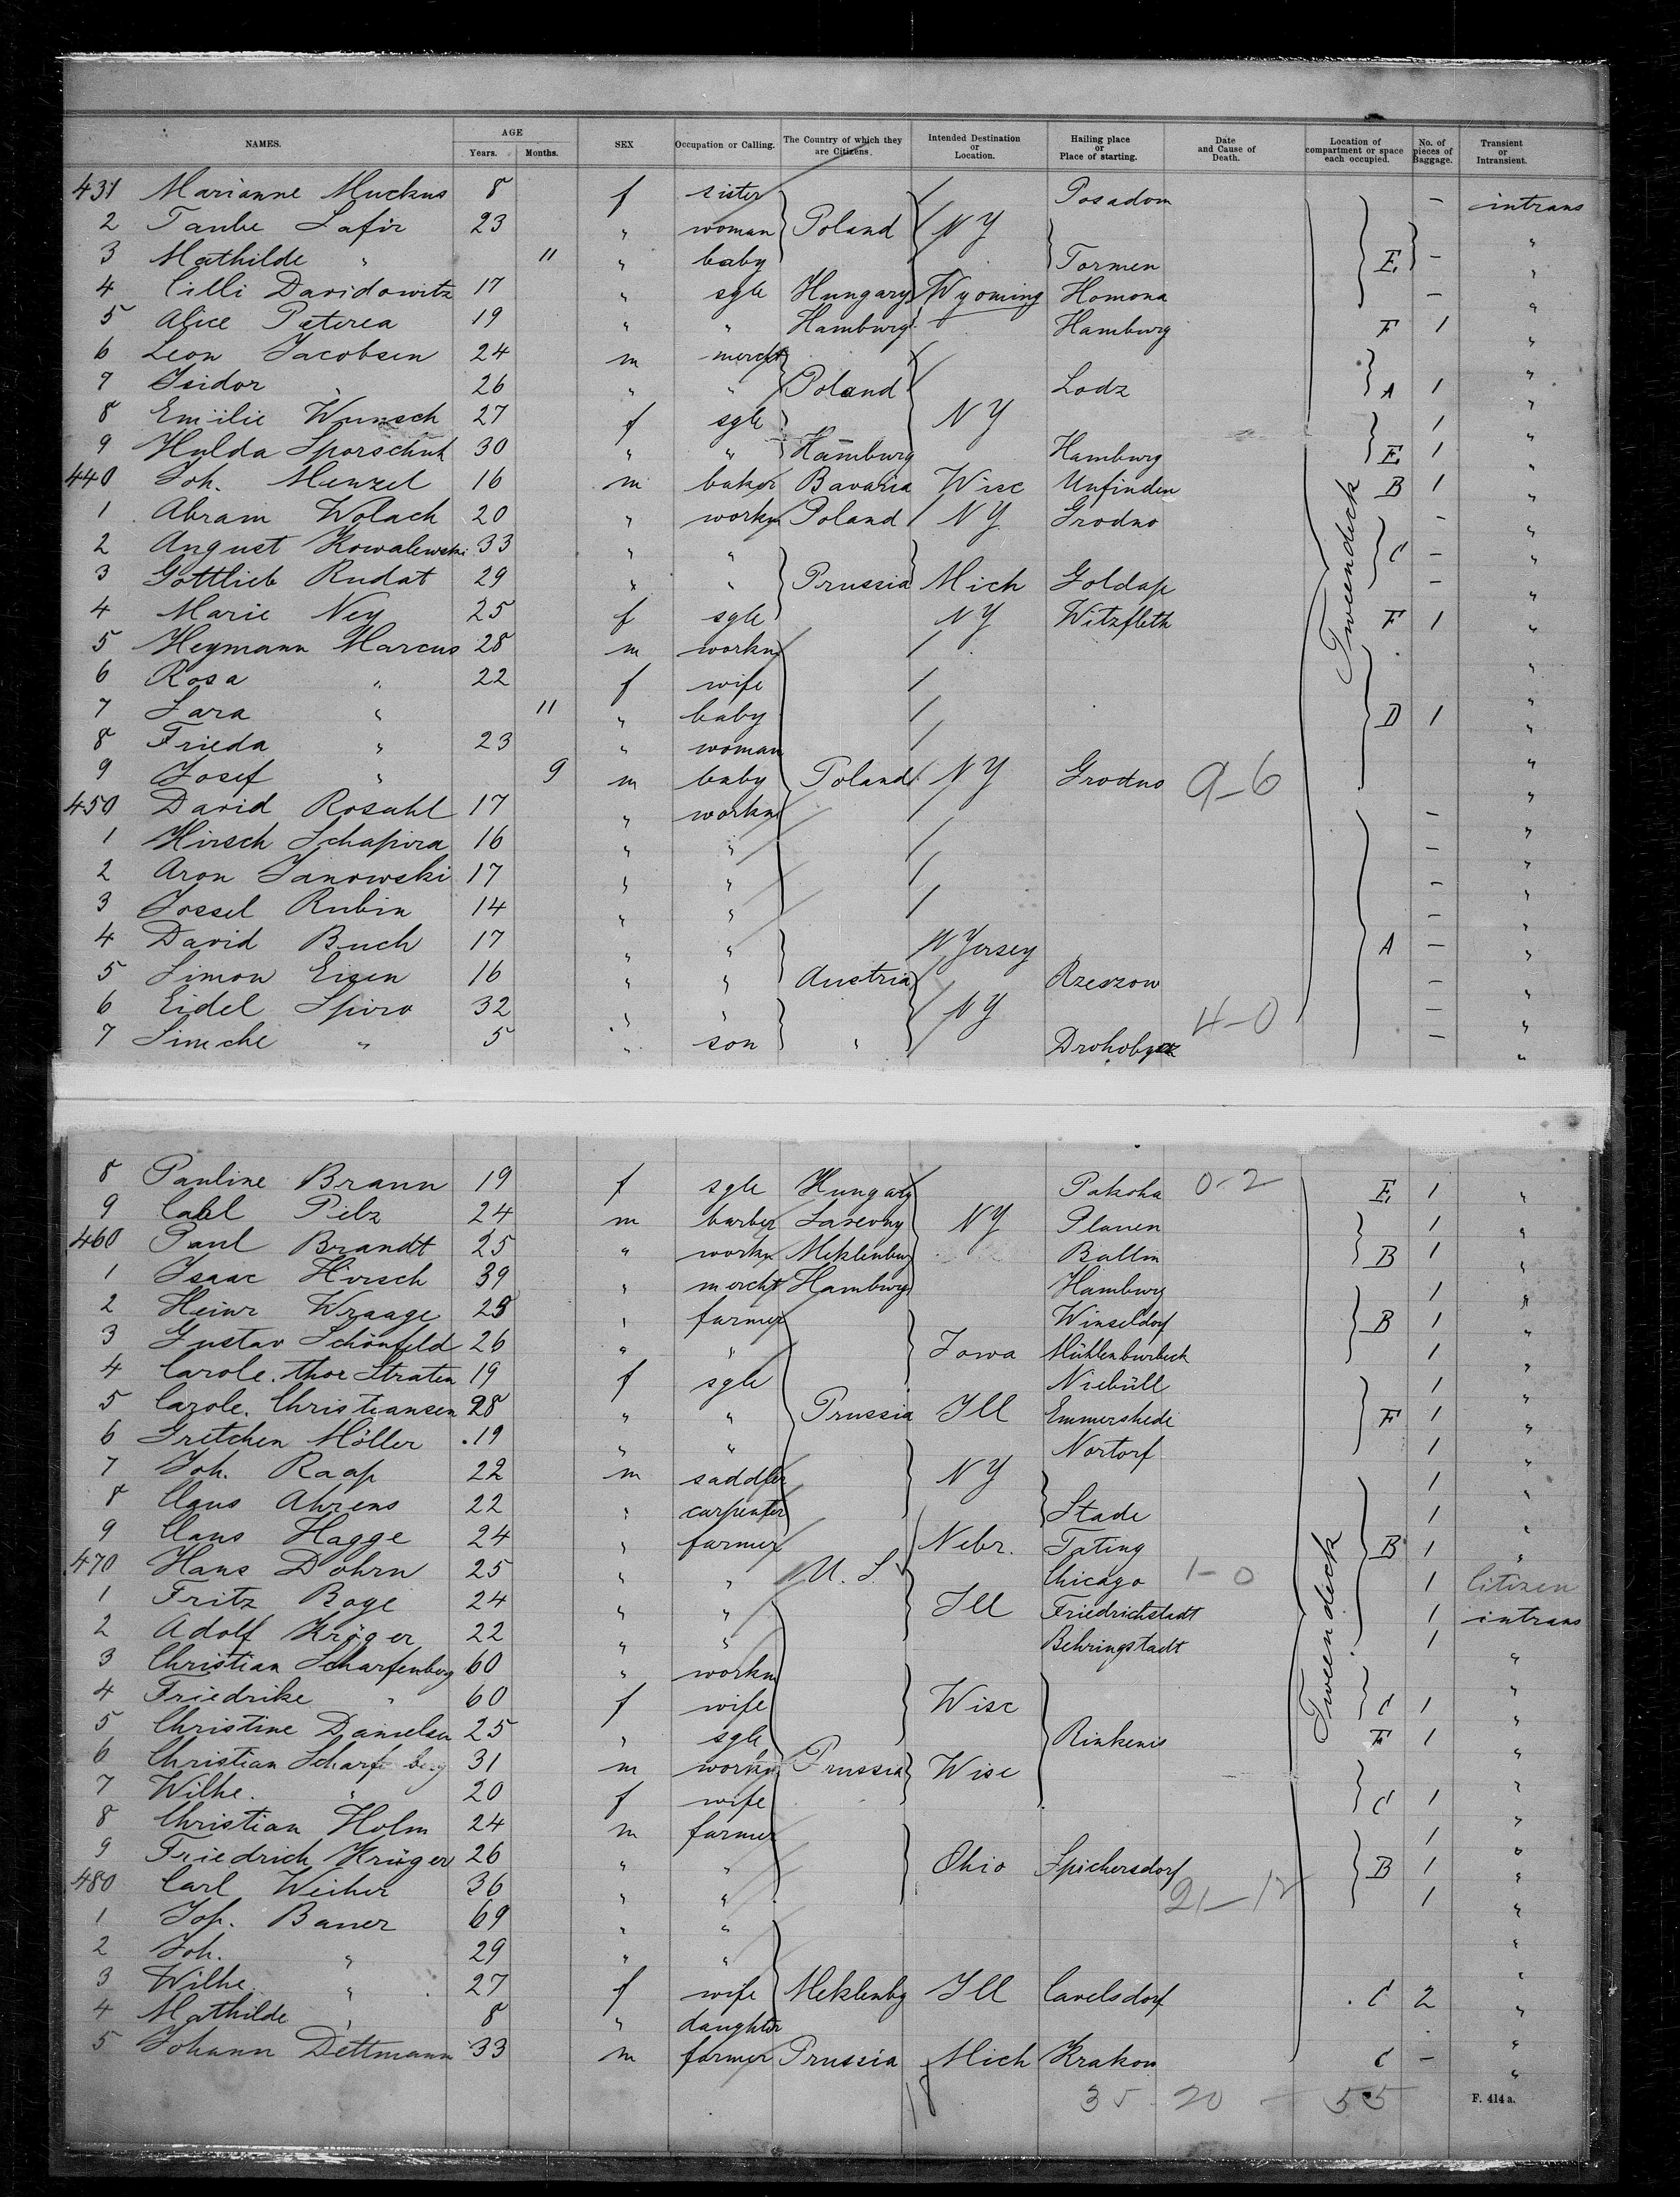 NAMES. AGE Years. Months. SEX Occupation or Calling. The Country of which they are Citizens. Intended Destination or Location. Hailing place or Place of starting. Date and Cause of Death. Location of compartment or space each occupied. No. of pieces of Baggage. Transient or Intransient.
431 Marianne Muckus 8 f sister Posadom - intrans
2 Taube Lafir 23 " woman Poland NY "
3 Mathilde " 11 " baby Tormen E - "
4 Cilli Davidowitz 17 " sgle Hungary Wyoming Homona - "
5 Alice Peterea 19 " " Hamburg Hamburg F 1 "
6 Leon Jacobsen 24 m mercht "
7 Isidor " 26 " " Poland Lodz A 1 "
8 Emilie Wunsch 27 f sgle NY 1 "
9 Hulda Sporschuh 30 " " Hamburg Hamburg E 1 "
440 Joh. Menzel 16 m baker Bavaria Wisc Unfinden B 1 "
1 Abram Wolach 20 " workm Poland NY Grodno - "
2 August Kowalewski 33 " " C - "
3 Gottlieb Rudat 29 " " Prussia Mich Goldap - "
4 Marie Ney 25 f sgle NY Witzfleth F 1 "
5 Heymann Marcus 28 m workm "
6 Rosa " 22 f wife "
7 Sara " 11 " baby D 1 "
8 Frieda " 23 " woman "
9 Josef " 9 m baby Poland NY Grodno 9-6 "
450 David Rosahl 17 " workm - "
1 Hirsch Schapira 16 " " - "
2 Aron Janowski 17 " " - "
3 Jossel Rubin 14 " " - "
4 David Buch 17 " " N Jersey A - "
5 Simon Eisen 16 " " Austria Rzeszow - "
6 Eidel Spiro 32 " " NY 4-0 - "
7 Simche " 5 " son " Drohobycz - "
Tweendeck
8 Pauline Braun 19 f sgle Hungary Pakoha 0-2 E 1 "
9 Carl Pilz 24 m barber Saxony NY Plauen 1 "
460 Paul Brandt 25 " workm Meklenburg Ballin B 1 "
1 Isaac Hirsch 39 " mercht Hamburg Hamburg 1 "
2 Heinr Wraage 25 " farmer Winseldorf B 1 "
3 Gustav Schönfeld 26 " " Iowa Mühlenburbeck 1 "
4 Carole. thor Straten 19 f sgle Niebüll 1 "
5 Carole. Christiansen 28 " " Prussia Ill Emmershede F 1 "
6 Gretchen Möller 19 " " Nortorf 1 "
7 Joh. Raap 22 m saddler NY 1 "
8 Claus Ahrens 22 " carpenter Stade 1 "
9 Claus Hagge 24 " farmer Nebr. Tating B 1 "
470 Hans Dohrn 25 " " U. S. Chicago 1-0 1 Citizen
1 Fritz Boye 24 " " Ill Friedrichstadt 1 intrans
2 Adolf Kröger 22 " " Behringstadt 1
3 Christian Scharfenberg 60 " workm "
4 Friedrike " 60 f wife Wisc C 1 "
5 Christine Danielsen 25 " sgle Rinkenis F 1 "
6 Christian Scharfenberg 31 m workm Prussia Wisc "
7 Wilhe. " 20 f wife C 1 "
8 Christian Holm 24 m farmer 1 "
9 Friedrich Krüger 26 " " Ohio Spichersdorf B 1 "
480 Carl Weiher 36 " " 21-12 1 "
1 Joh. Bauer 69 " " "
2 Joh. " 29 " " "
3 Wilhe. " 27 f wife Meklenbg Ill Carelsdorf C 2 "
4 Mathilde " 8 " daughter "
5 Johann Dettmann 33 m farmer Prussia Mich Krakow C - "
Tweendeck
35 20 - 55
F. 414 a.